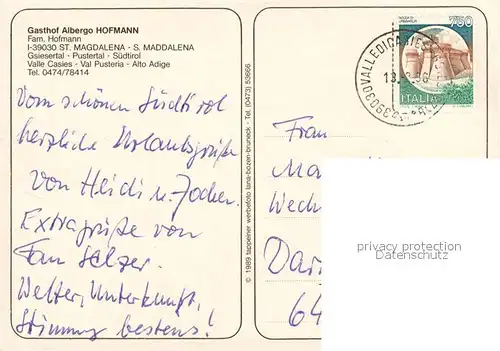 Gasthof Albergo HOFMANN
Fam. Hofmann
I-39030 ST. MAGDALENA - S. MADDALENA
Gsiesertal - Pustertal - Südtirol
Valle Casies - Val Pusteria - Alto Adige
Tel. 0474/78414
Vom schönen Südtirol
herzliche Urlaubsgrüße
von Heidi u. Jochen.
Extragrüße von
Fam Selzer.
Wetter, Unterkunft,
Stimmung bestens!
© 1989 tappeiner werbefoto lana-bozen-bruneck · Tel. (0473) 53666
750
ITALIA
39030 VALLE DI CASIES
Frau
Ma
Wech
Dar
64
privacy protection
Datenschutz